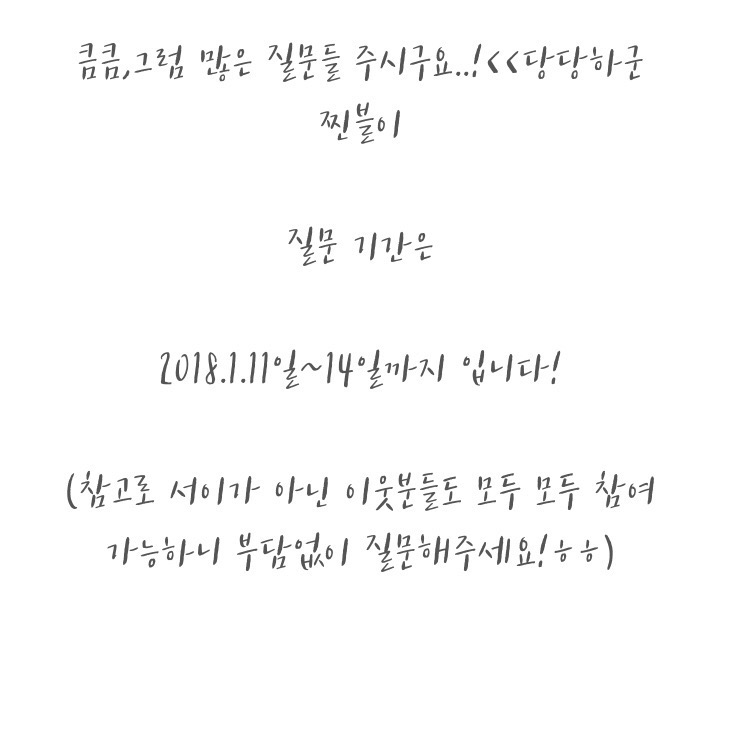 큼큼,그럼 많은 질문들 주시구요..!<<당당하군
찐블이
질문 기간은
2018.1.11일~14일까지 입니다!
(참고로 서이가 아닌 이웃분들도 모두 모두 참여
가능하니 부담없이 질문해주세요!ㅎㅎ)